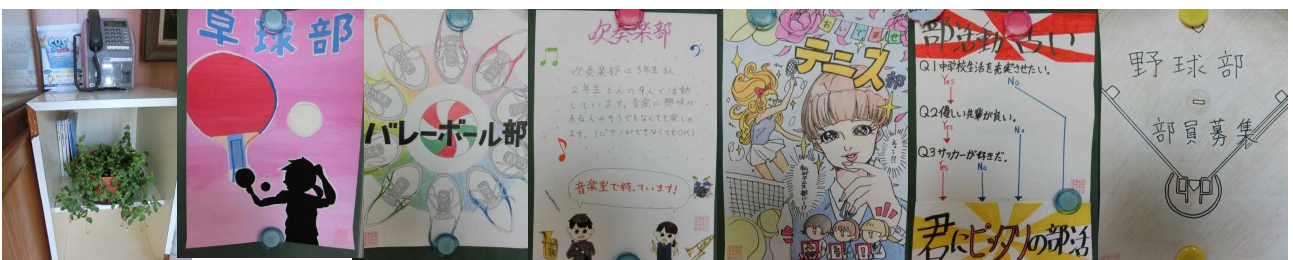 卓球部
バレーボール部
吹奏楽部
吹奏楽部は3年生3人
2年生6人の9人で活動
しています。音楽に興味が
ある人もそうでなくても楽しめ
ます。(ピアノができなくてもOK)
音楽室で待っています!
おいでませ
テニス部
え…!?
私がテニス部に!?
部活動占い
Q1中学校生活を充実させたい。
Yes
No
Q2優しい先輩が良い。
Yes
No
Q3サッカーが好きだ。
Yes
No
君にピッタリの部活
野球部
部員募集